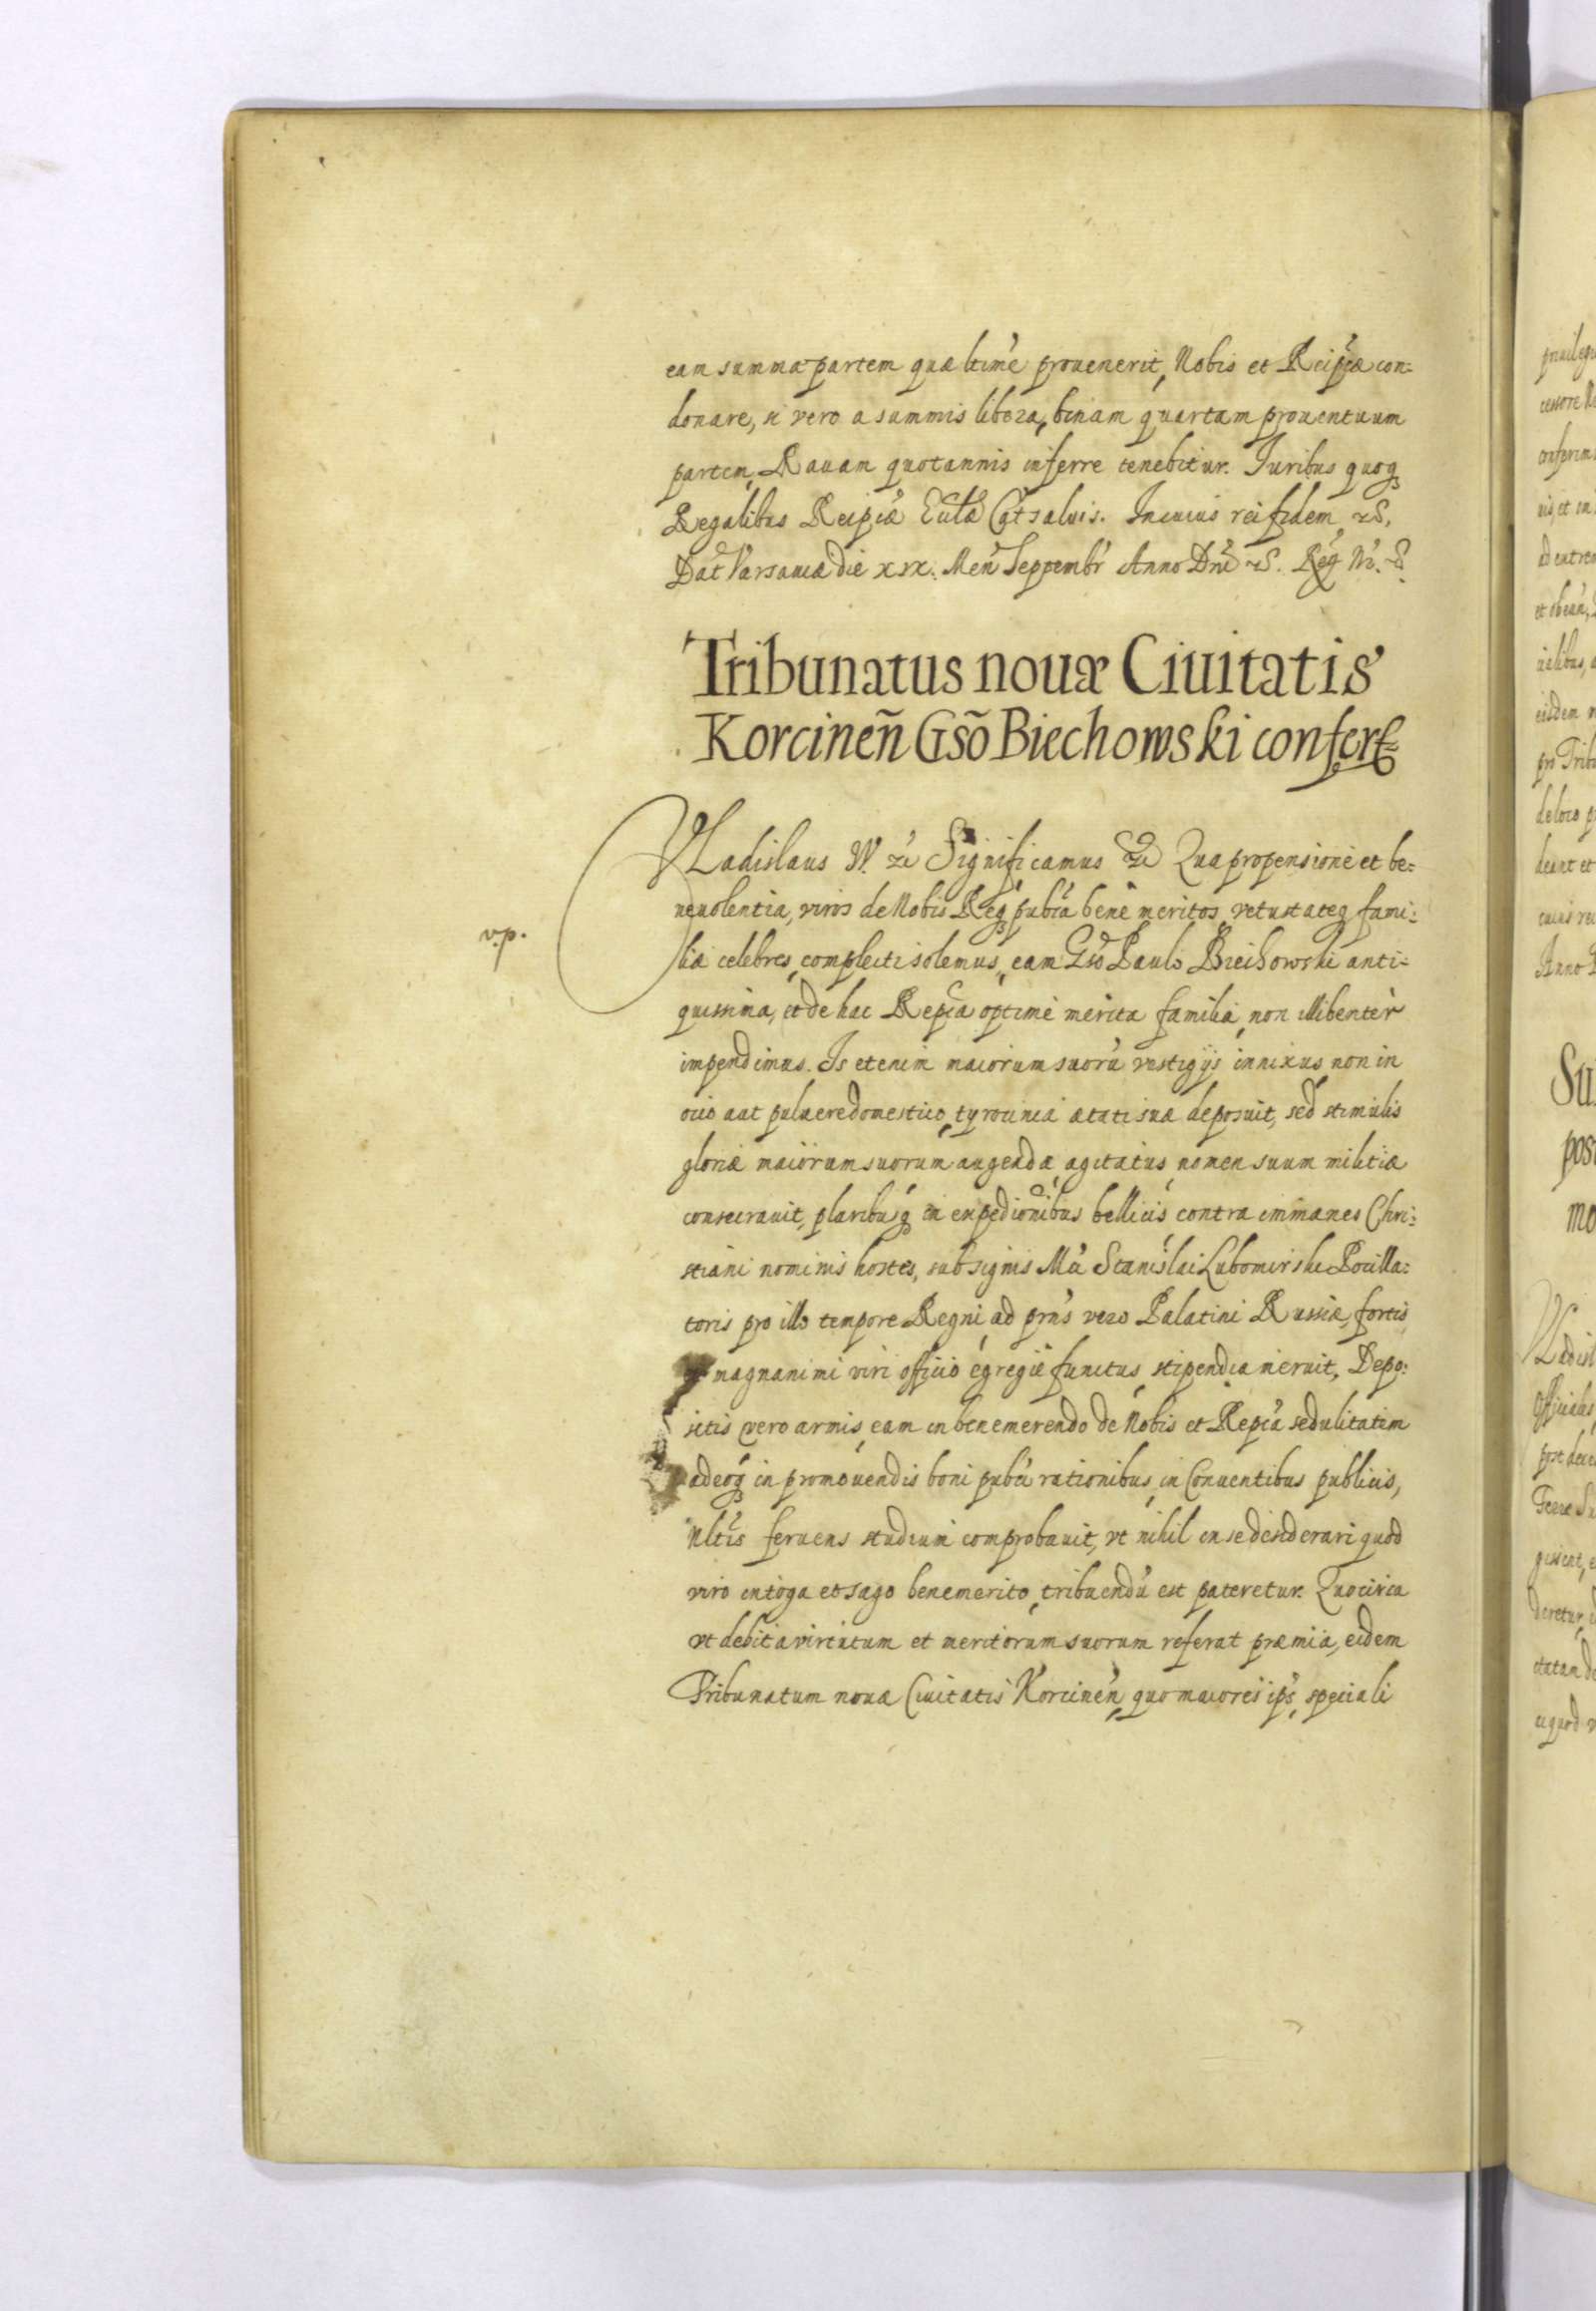 eam summa partem quæ ltime prouenerit, Nobis et Reipcæ con-
donare, si vero a summis libera, binam quartam prouentuum
partem Rauam quotannis inferre tenebitur. Iuribus quoq
Regalibus Reipcæ Eccle Catsaluis. In cuius rei fidem
Dat Varsauiæ die xix. Men Septembr Anno Dni
Tribunatus nouæ Ciuitatis
Korcinen̄ Gsō Biechowski confert
VLadislaus IV. Significamus Qua propensione et be-
neuolentia, viros de Nobis Req pubca bene meritos vetustateq fami-
lia celebres, complecti solemus, eam Gso Paulo Biechowski anti-
quissima, et de hac Repca optime merita familia, non illibenter
impendimus. Is etenim maiorum suorū vestigijs innixus non in
ocio aut puluere domestico, tyrocinia ætati suæ deposuit, sed stimulis
gloriæ maiorum suorum augendæ agitatus, nomen suum militiæ
consecrauit, pluribusq in expedionibus bellicis contra immanes Chri-
stiani nominis hostes, sub signis Mci Stanislai Lubomirski Pocilla-
toris pro illo tempore Regni, ad prns vero Palatini Russiæ, fortis
magnanimi viri officio egregie functus, stipendia meruit, Depo-
sitis vero armis, eam in benemerendo de Nobis et Repca sedulitatem
adeoq in promouendis boni pubci rationibus, in Conuentibus publicis,
feruens studium comprobauit, vt nihil in se desiderari quod
viro in toga et sago benemerito, tribuendū est pateretur. Quocirca
vt debita virtutum et meritorum suorum referat præmia, eidem
Tribunatum nouæ Ciuitatis Korcinen, quo maiores ips, speciali
v.p.